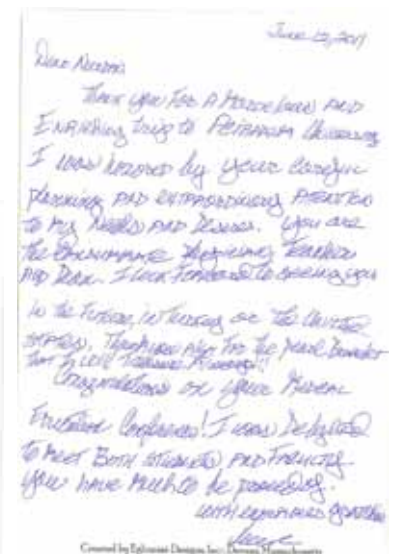 June 12, 2011
Dear
Thank you for a Marvelous and
Enriching trip to University
I was honored by your careful
planning and extraordinary attention
to my Needs and Desires. You are
the Consummate Teacher
and Dean. I look forward to seeing you
in the Future, in Turkey or the United
States. Thank you also for the Pearl Bracelet
that I will Always!!
Congratulations on your
Conference! I was Delighted
to meet Both students and Faculty.
You have Much to be proud of.
with
Created by Designs, Inc., Massachusetts